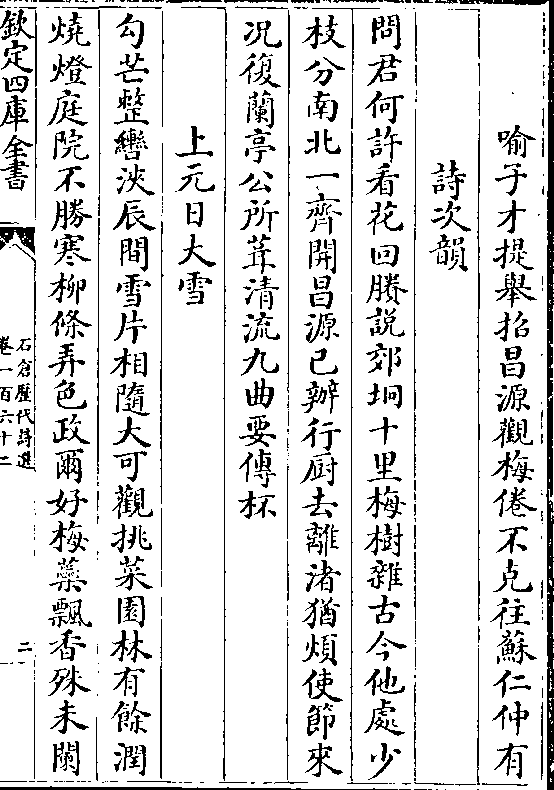 喻子才提舉招昌源觀梅倦不克往蘇仁仲有
詩次韻
問君何許看花回勝説郊坰十里梅樹雜古今他處少
枝分南北一齊開昌源已辦行厨去離渚猶煩使節來
况復蘭亭公所葺清流九曲要傳杯
上元日大雪
勾芒整轡浹辰間雪片相隨大可觀挑菜園林有餘潤
燒燈庭院不勝寒柳條弄色政爾好梅蘂飄香殊未闌
欽定四庫全書
石倉歷代詩選
卷一百六十二
二